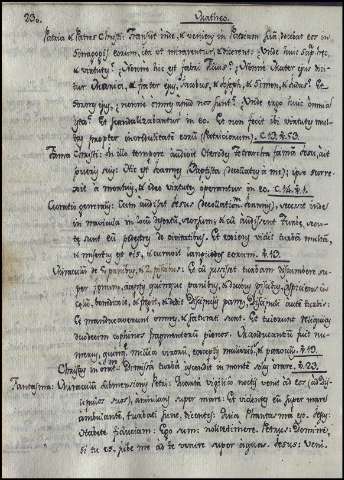 230. Mattheo.
Patria & Patres Christi: Transiit inde, & veniens in Patriam suã docebat eos in
Synagogis eorum, ita ut mirarentur, & dicerent: Unde huic sap.ª hæc,
& virtutes? Nonne hic est fabri filius? Nonne Mater ejus dici-
tur Maria, & fratres ejus, Jacobus, & Joseph, & Simon, & Judas? Et
sorores ejus, nonne omnes apud nos sunt? Unde ergo huic omnia
ista? Et scandalizabantur in eo. Et non fecit ibi virtutes mul-
tas propter incredulitatẽ eorũ C. 13. ỳ. 53.
Fama Christi: In illo tempore audivit Herodes Tetrarcha famam Jesu, ait
pueris suis: Hic est Joannes Baptista (decollatus à me); ipse surre-
xit à mortuis, & ideo virtutes operantur in eo. C. 14. ỳ. 1.
Curatio generalis: Cum audisset Jesus secessit inde
in navicula in locũ desertũ, seorsum; & cũ audissent Turbæ, secu-
tæ sunt eũ pedestres de civitatibus. Et exiens vidit turbã multã,
& misertus est eis, & curavit languidos eorum. ỳ. 13.
Miraculũ de 5 panibus, & 2 piscibus: Et cũ jussisset turbam discumbere su-
per fœnum, acceptis quinque panibus, & duobus piscibus, aspiciens in
cœlũ, benedixit, & fregit, & dedit Discipulis panes, Discipuli autẽ turbis:
Et manducaverunt omnes, & saturati sunt. Et tulerunt reliquias
duodecim cophinos fragmentorum plenos. Manducantiũ fuit nu-
merus, quinq. millia virorũ, exceptis mulieribus, & parvulis. ỳ. 19.
Christus in orat. Dimissa turba ascendit in montẽ solus orare. ỳ. 23.
Fantasma: Miraculũ submersionis Petri: Quarta vigilia noctis venit ad eos
ambulans super mare: Et videntes eũ super mare
ambulantẽ, turbati sunt, dicentes: Quia Phantasma est.
Habete fiduciam: Ego sum: nolite timere. Petrus: Domine,
si tu es, jube me ad te venire super aquas. Jesus: Veni.